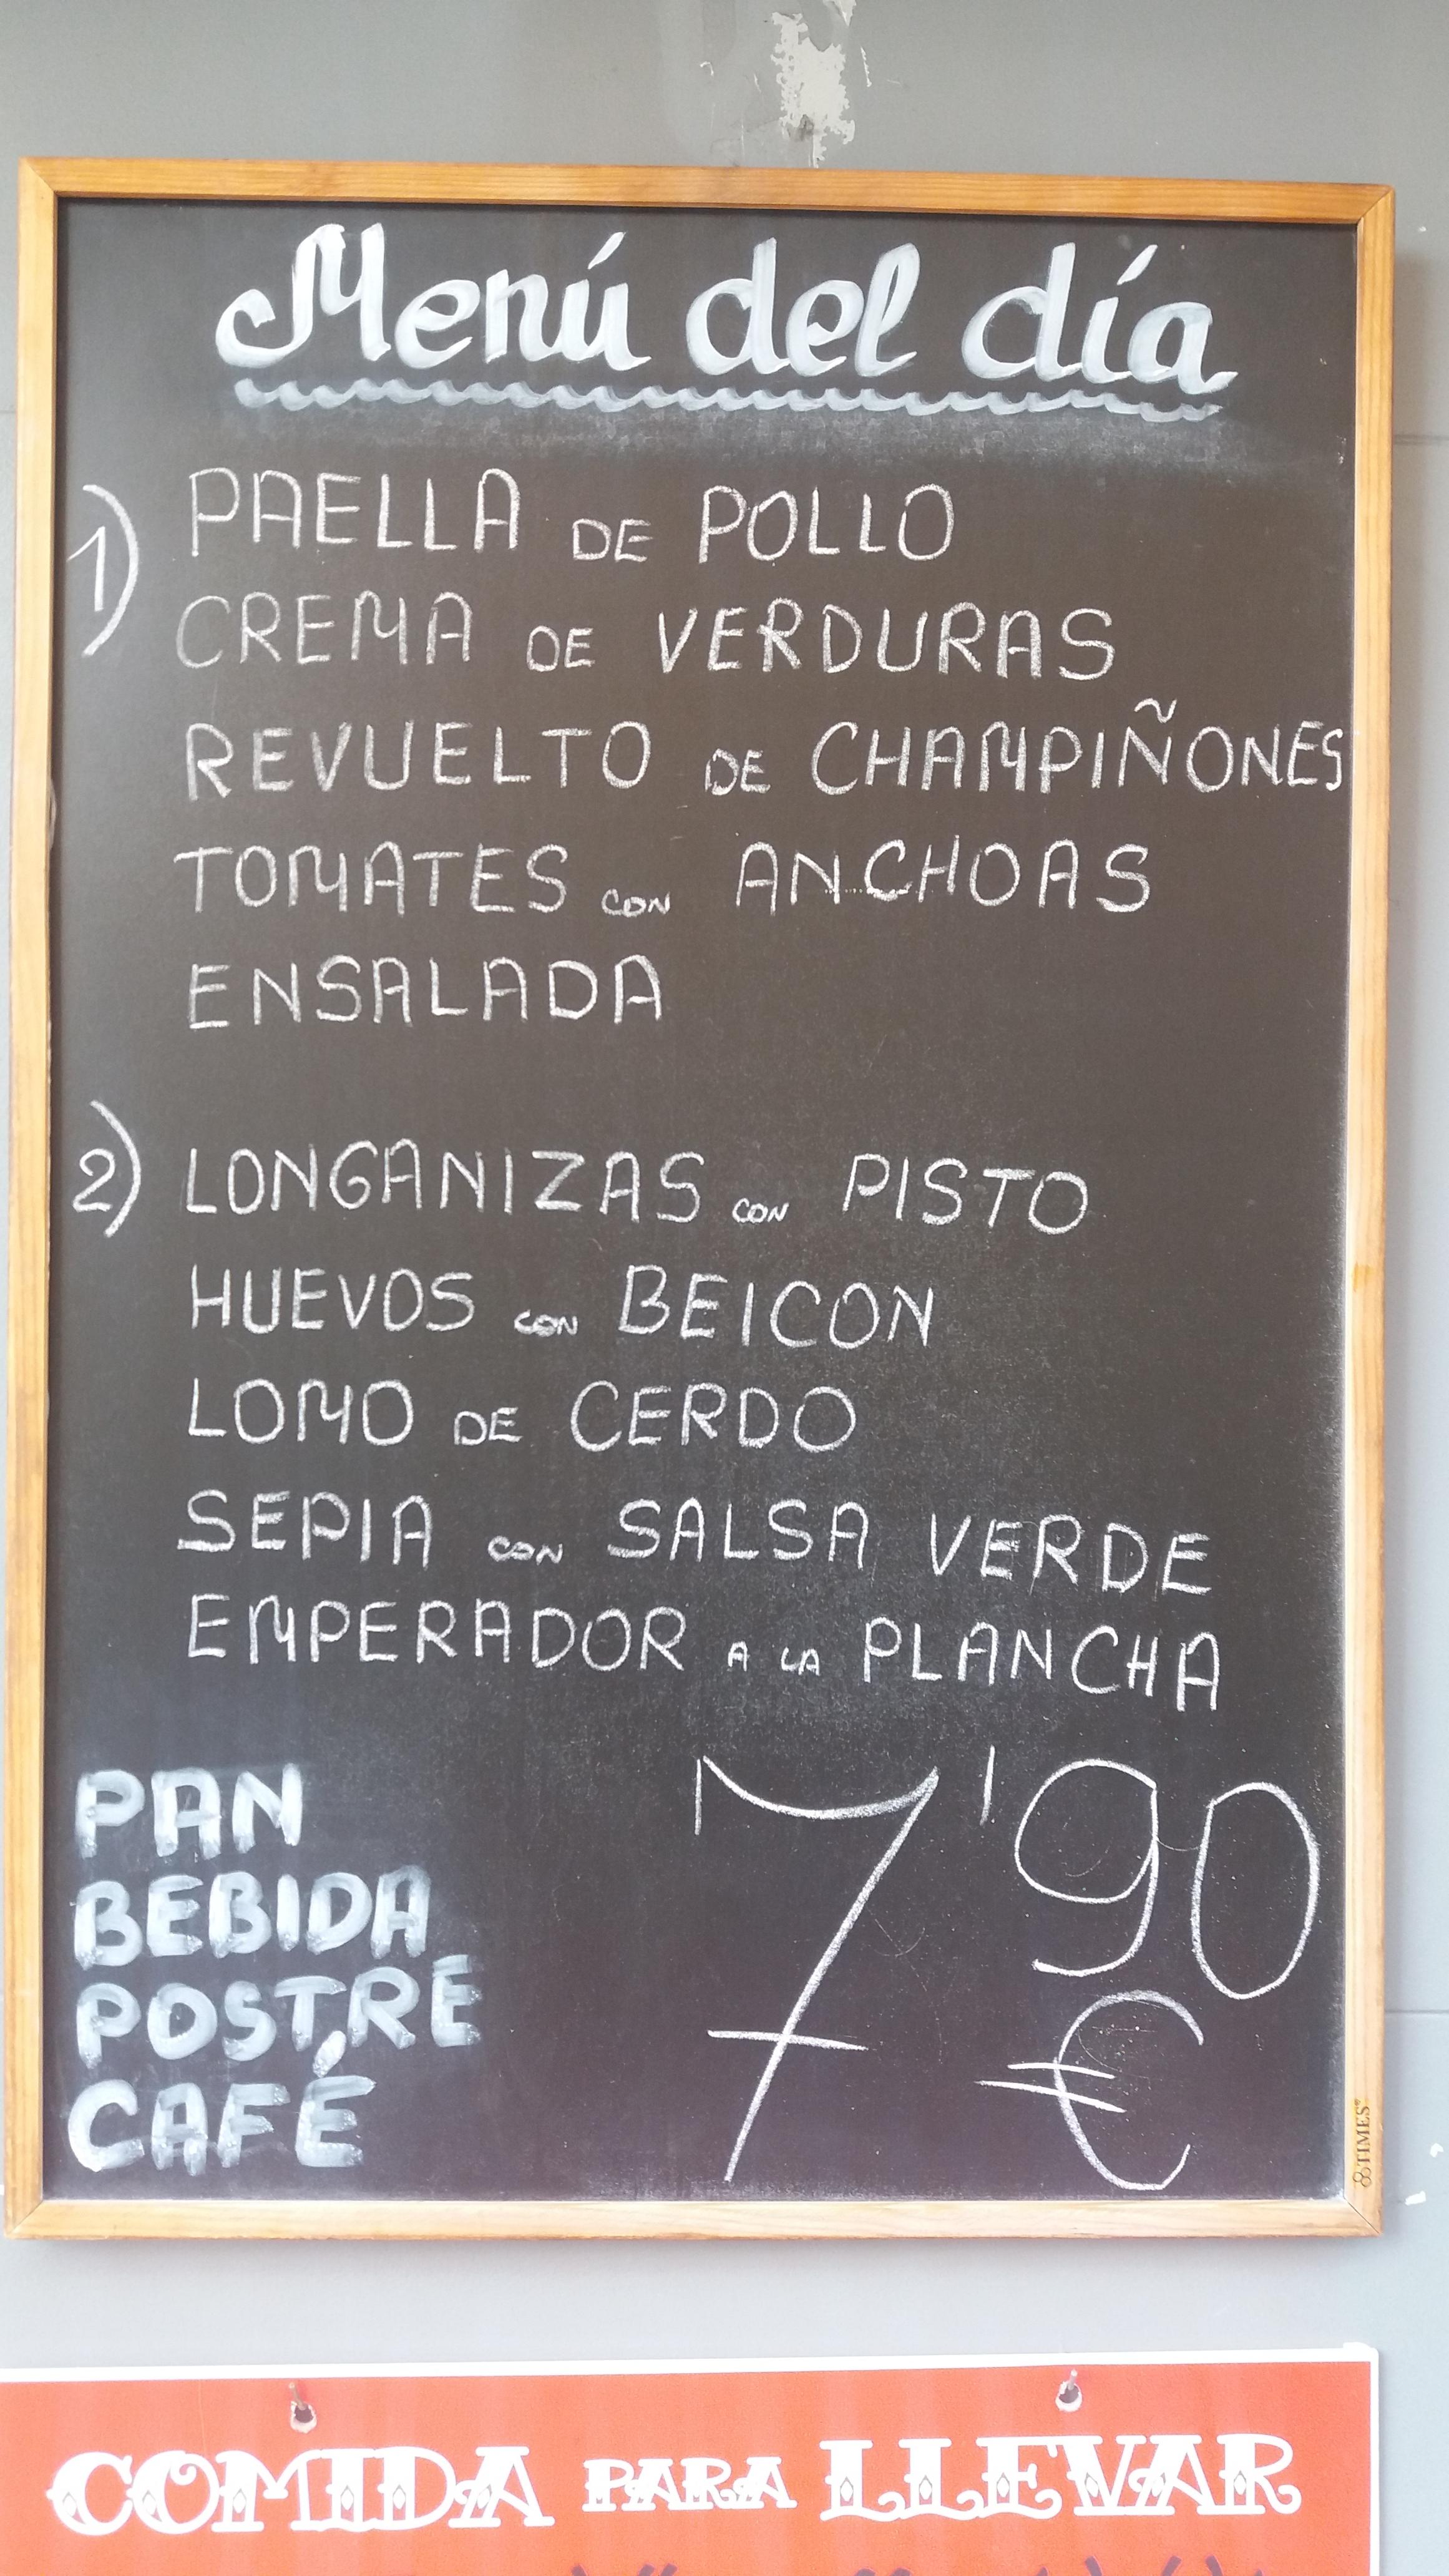 Menú del día
1) PAELLA DE POLLO
CREMA DE VERDURAS
REVUELTO DE CHAMPIÑONES
TOMATES CON ANCHOAS
ENSALADA
2) LONGANIZAS CON PISTO
HUEVOS CON BEICON
LOMO DE CERDO
SEPIA CON SALSA VERDE
EMPERADOR A LA PLANCHA
PAN
BEBIDA
POSTRE
CAFÉ
7'90
€
TIMES
COMIDA PARA LLEVAR